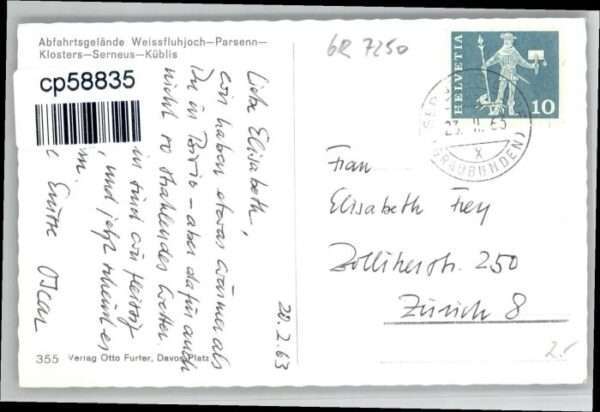 Abfahrtsgelände Weissfluhjoch—Parsenn—
Klosters—Serneus—Küblis
cp58835
GR 7250
HELVETIA
10
(GRAUBÜNDEN)
x
Liebe Elisabeth,
wir haben etwas wärmer als
Du in Bivio - aber dafür auch
nicht so strahlendes Wetter.
sind wir
und jetzt scheint es
Oscar
20.2.63
Frau
Elisabeth Frey
Zollikerstr. 250
Zürich 8
2.-
355 Verlag Otto Furter, Davos-Platz